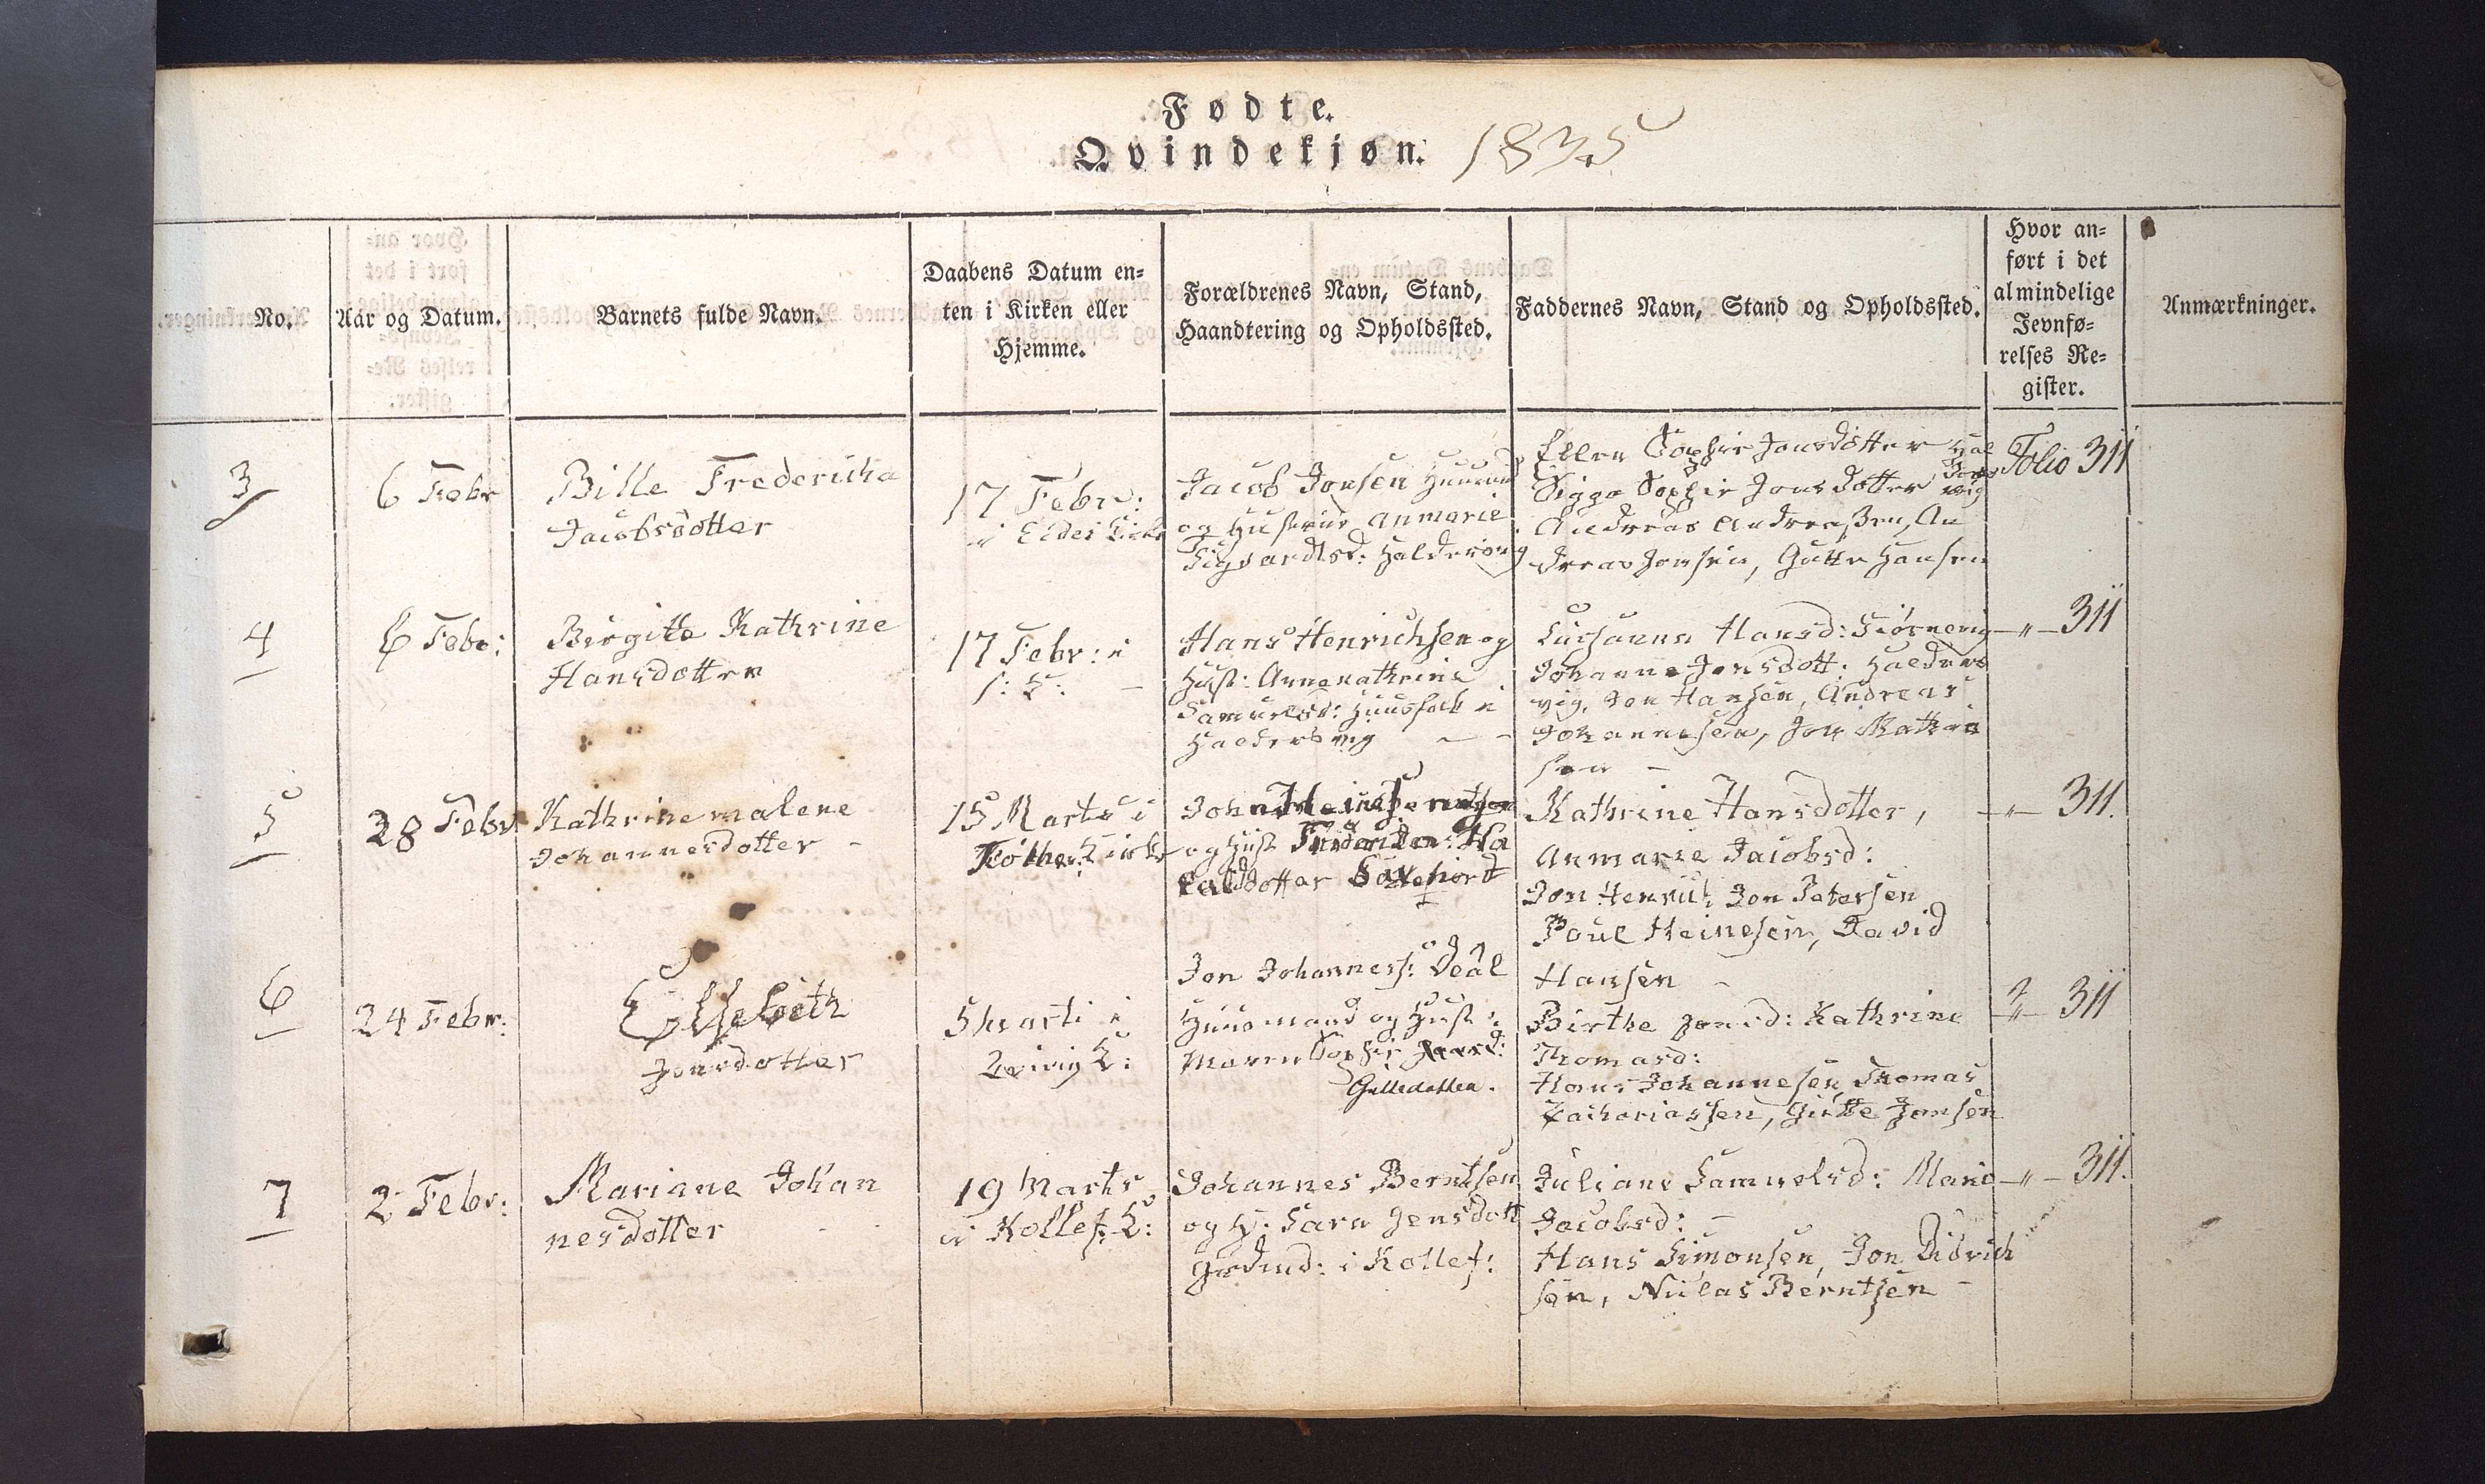 Fødte.
Qvindekjøn. 1835
No.
Aar og Datum.
Barnets fulde Navn.
Daabens Datum en-
ten i Kirken eller
Hjemme.
Forældrenes Navn, Stand,
Haandtering og Opholdssted.
Faddernes Navn, Stand og Opholdssted.
Hvor an-
ført i det
almindelige
Jevnfø-
relses Re-
gister.
Anmærkninger.
3
6 Febr
Bille Fredericha
Jacobsdotter
17 Febr:
i Eides Kirke
Jacob Jonsen Huusm
og Hustrue Anmarie
Sigvardtsd: Haldersvig
Ellen Sophie Jonsdotter Hal
Sigga Sophie Jonsdotter
vig
Andreas Andreassen, An
dreas Jonsen, Gutte Hansen
Folio 311
4
6 Febr:
Birgitte Kathrine
Hansdotter
17 Febr: i
s: K:
Hans Henrichsen og
Hust: Annekathrine
Samuelsd: Huusfolk i
Haldersvig
Susanna Hansd: Tiørnevig
Johanne Jonsdott: Halders
vig, Jon Hansen, Andreas
Johannesen, Jon Mathia
sen -
-"- 311
5
28 Febr
Kathrinemalene
Johannesdotter -
15 Marts i
Kirke
og Hust
dotter
Kathrine Hansdotter,
Anmarie Jacobsd:
Jon Henrich: Jon Petersen
Poul Heinesen, David
Hansen -
-"- 311.
6
24 Febr:
Elsebeth
Jonsdotter
5 Marti i
K:
Jon Johanness:
Huusmand og Hust:
Maren Sophie
Birthe Jonsd: Kathrine
Thomasd:
Hans Johannesen Thomas
Zachariassen, Gutte Jonsen
-"- 311
7
2 Febr:
Mariane Johan
nesdotter
19 Marts
i Kollef: K:
Johannes Berntsen
og H: Sara Jensdott
i Kollef:
Juliane Samuelsd: Maria
Jacobsd: -
Hans Simonsen, Jon Didrich
sen, Niclas Berntsen -
-"- 311.